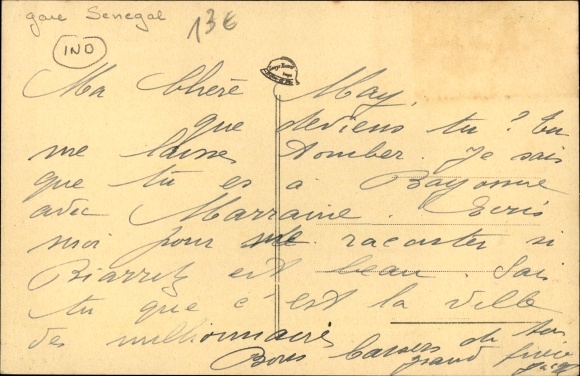 gare Senegal
13€
IND
Ma Chère May,
que deviens tu ? Tu
me laisses tomber. Je sais
que tu es a Bayonne
avec Marraine. Ecris
moi pour me raconter si
Biarritz est beau. Sais
tu que c'est la ville
des millionnaires
Bons baisers de ton
grand frère